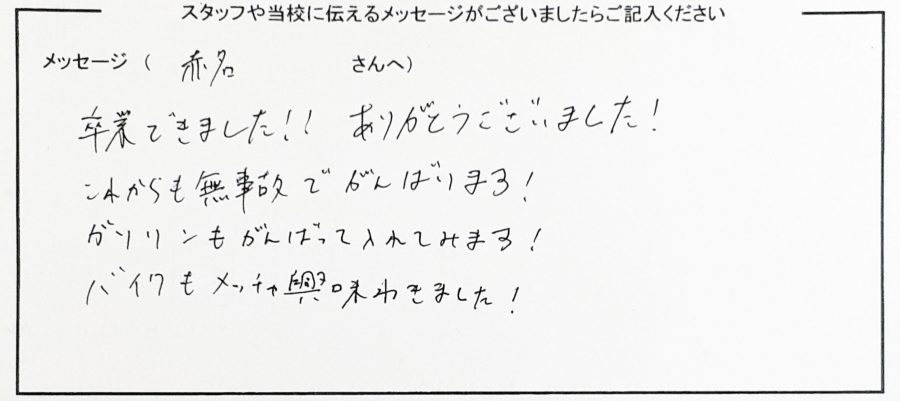 スタッフや当校に伝えるメッセージがございましたらご記入ください
メッセージ ( 赤名 さんへ)
卒業できました!! ありがとうございました!
これからも無事故でがんばります!
ガソリンもがんばって入れてみます!
バイクもメッチャ興味わきました!